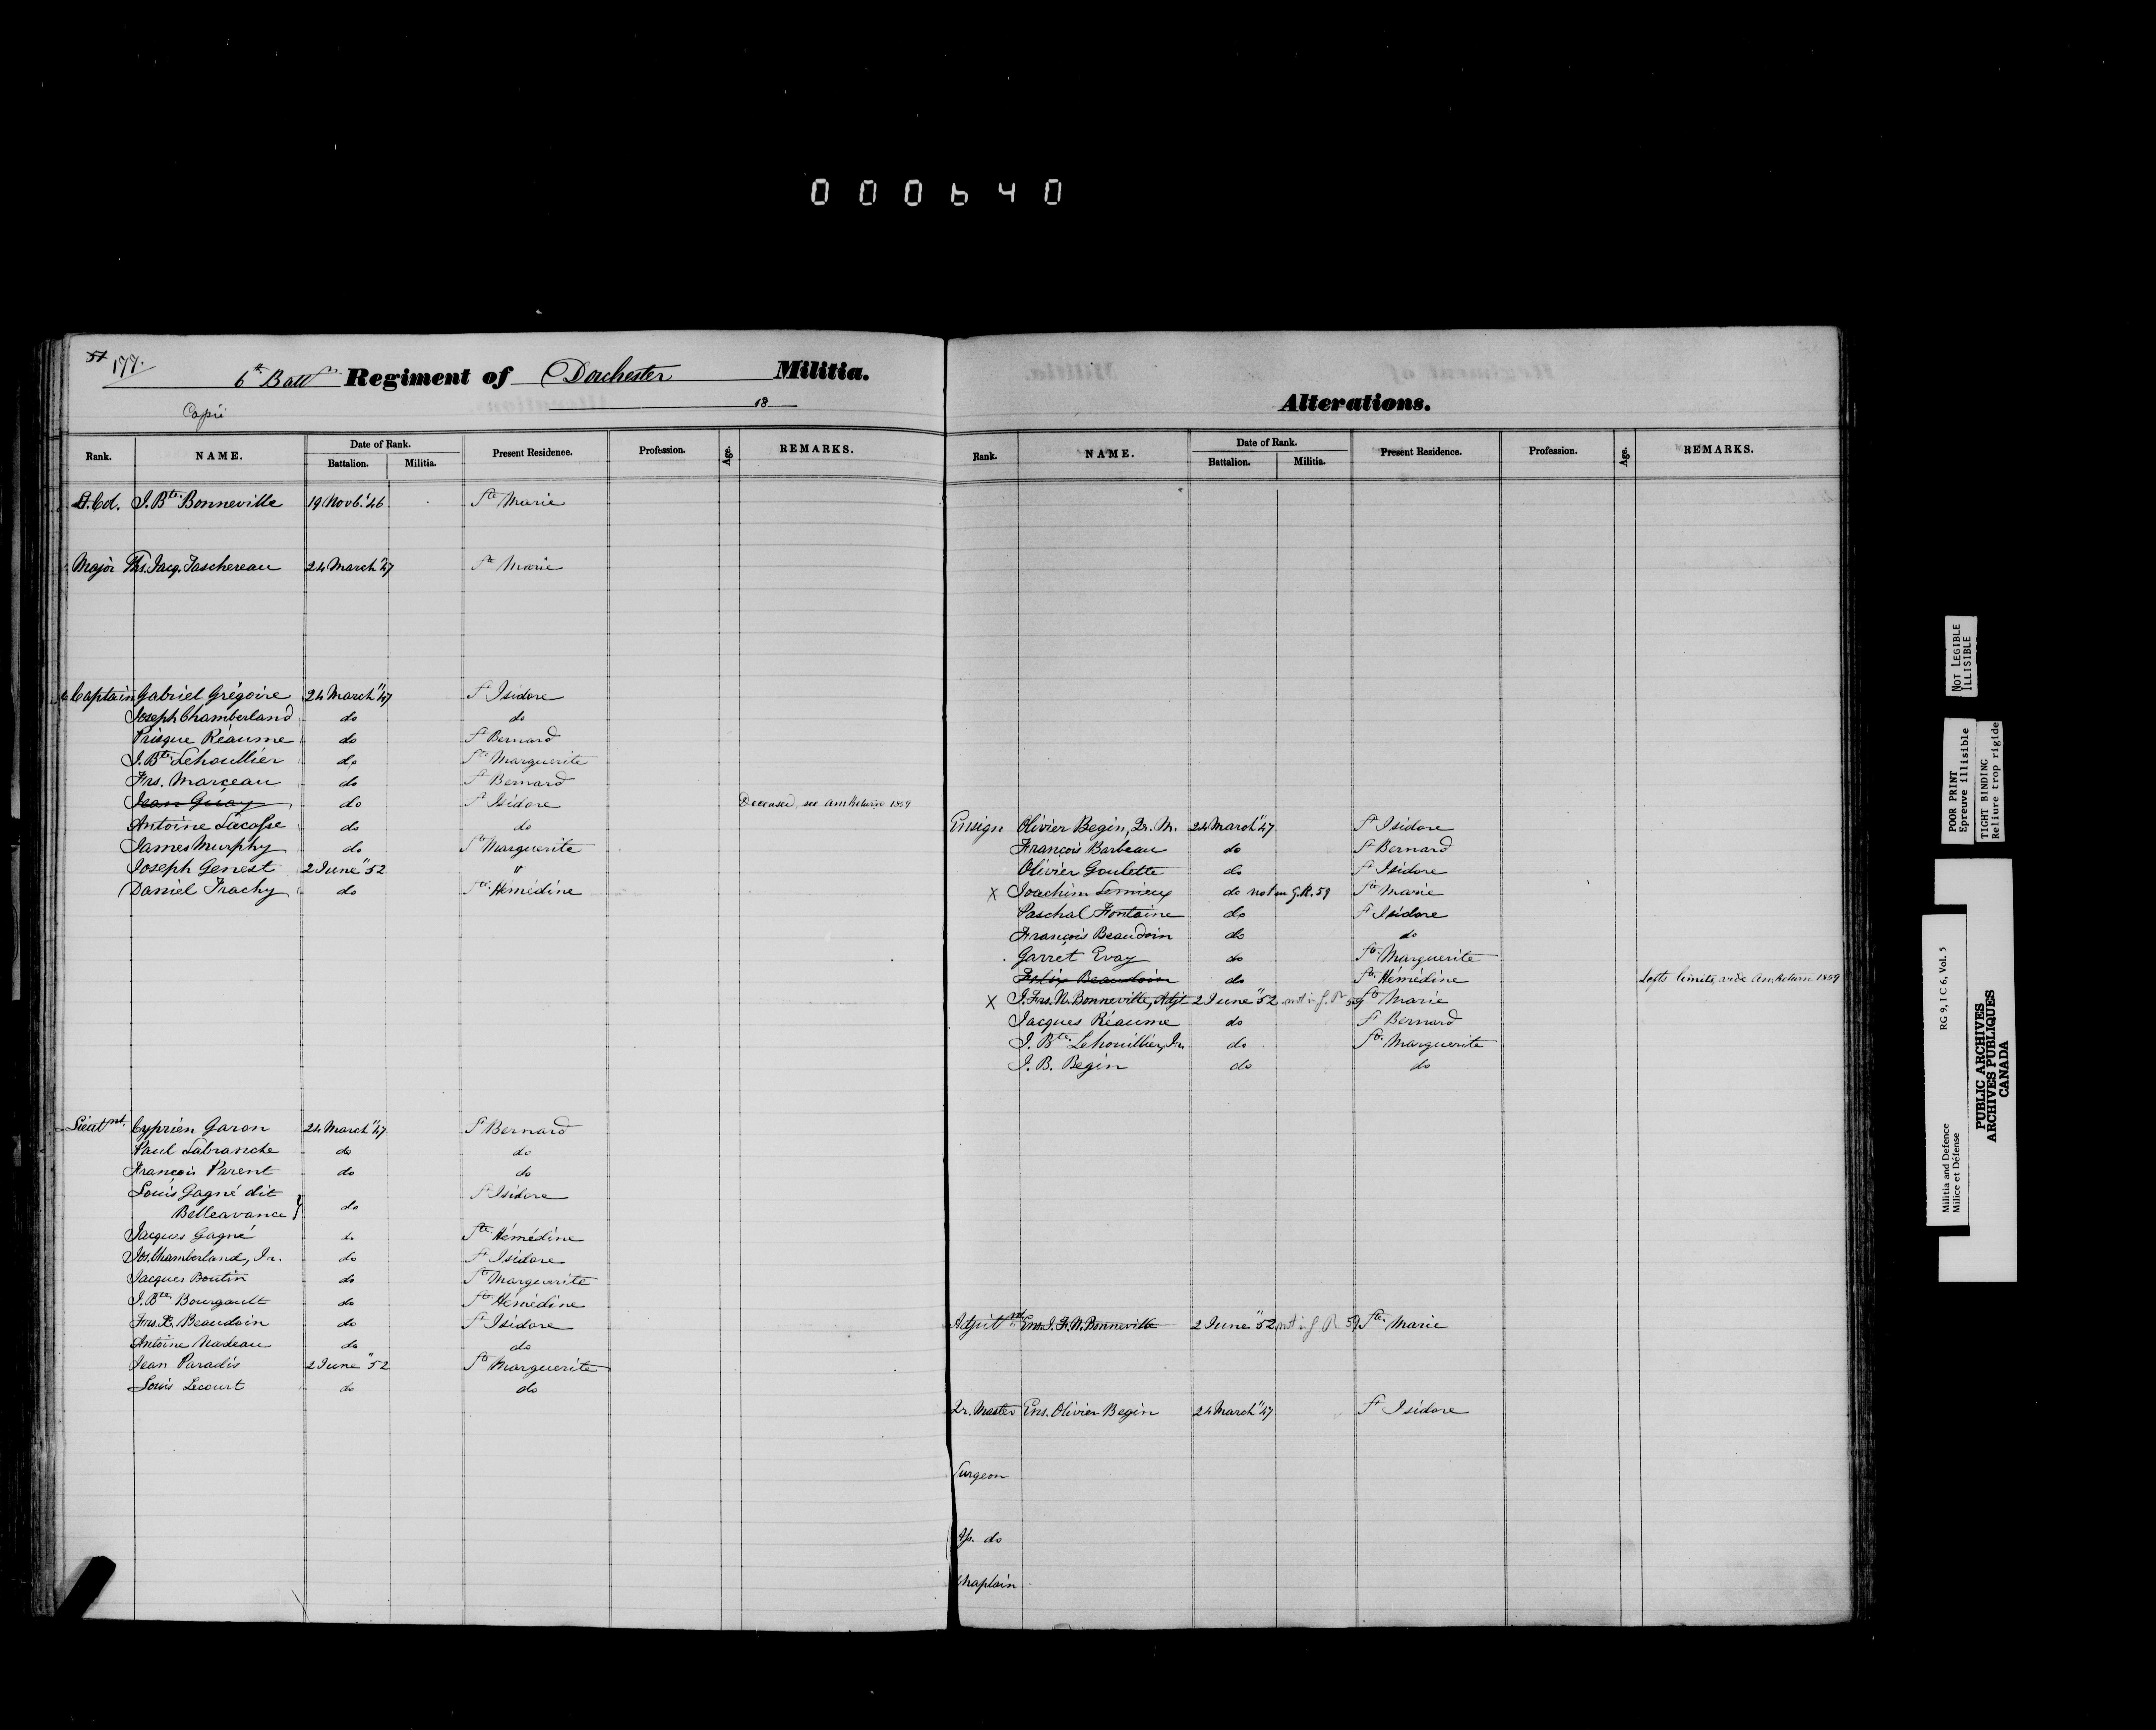 000640
51 177.
6th Battn Regiment of Dorchester Militia.
Copié
18
Rank. NAME. Date of Rank. Battalion. Militia. Present Residence. Profession. Age. REMARKS.
Lt. Col. J. Bte Bonneville 19 Novb. '46 Ste Marie
Major Ths. Jacq. Taschereau 24 March "47 Ste Marie
Captain Gabriel Grégoire 24 March "47 St Isidore
Joseph Chamberland do do
Prisque Réaume do St Bernard
J. Bte Lehoullier do Ste Marguerite
Frs. Marceau do St Bernard
Jean Guay do St Isidore Deceased, see An Return 1859
Antoine Lacasse do do
James Murphy do Ste Marguerite
Joseph Genest 2 June "52 "
Daniel Trachy do Ste Hémédine
Lieutnt. Cyprien Garon 24 March "47 St Bernard
Paul Labranche do do
François Parent do do
Louis Gagné dit St Isidore
Belleavance } do
Jacques Gagné do Ste Hémédine
Jos. Chamberland, Jr. do St Isidore
Jacques Boutin do Ste Marguerite
J. Bte Bourgault do Ste Hémédine
Frs. X. Beaudoin do St Isidore
Antoine Nadeau do do
Jean Paradis 2 June "52 Ste Marguerite
Louis Lecourt do do
Alterations.
Rank. NAME. Date of Rank. Battalion. Militia. Present Residence. Profession. Age. REMARKS.
Ensign Olivier Begin, Qr. M. 24 March "47 St Isidore
François Barbeau do St Bernard
Olivier Goulette do St Isidore
x Joachim Lemieux do not in G.R. 59 Ste Marie
Paschal Fontaine do St Isidore
François Beaudoin do do
Garret Evay do Ste Marguerite
Felix Beaudoin do Ste Hémédine Left limits, vide An Return 1859
x J. Frs. N. Bonneville, Adjt 2 June "52 not in G. R 59 Ste Marie
Jacques Réaume do St Bernard
J. Bte Lehouillier, Jr. do Ste Marguerite
J. B. Begin do do
Adjutnt Ens. J. F. N. Bonneville 2 June "52 not in G. R 59 Ste Marie
Qr. Master Ens. Olivier Begin 24 March "47 St Isidore
Surgeon
As. do
Chaplain
NOT LEGIBLE
ILLISIBLE
POOR PRINT
Epreuve illisible
TIGHT BINDING
Reliure trop rigide
Militia and Defence RG 9, I C 6, Vol. 5
Milice et Défense
PUBLIC ARCHIVES
ARCHIVES PUBLIQUES
CANADA